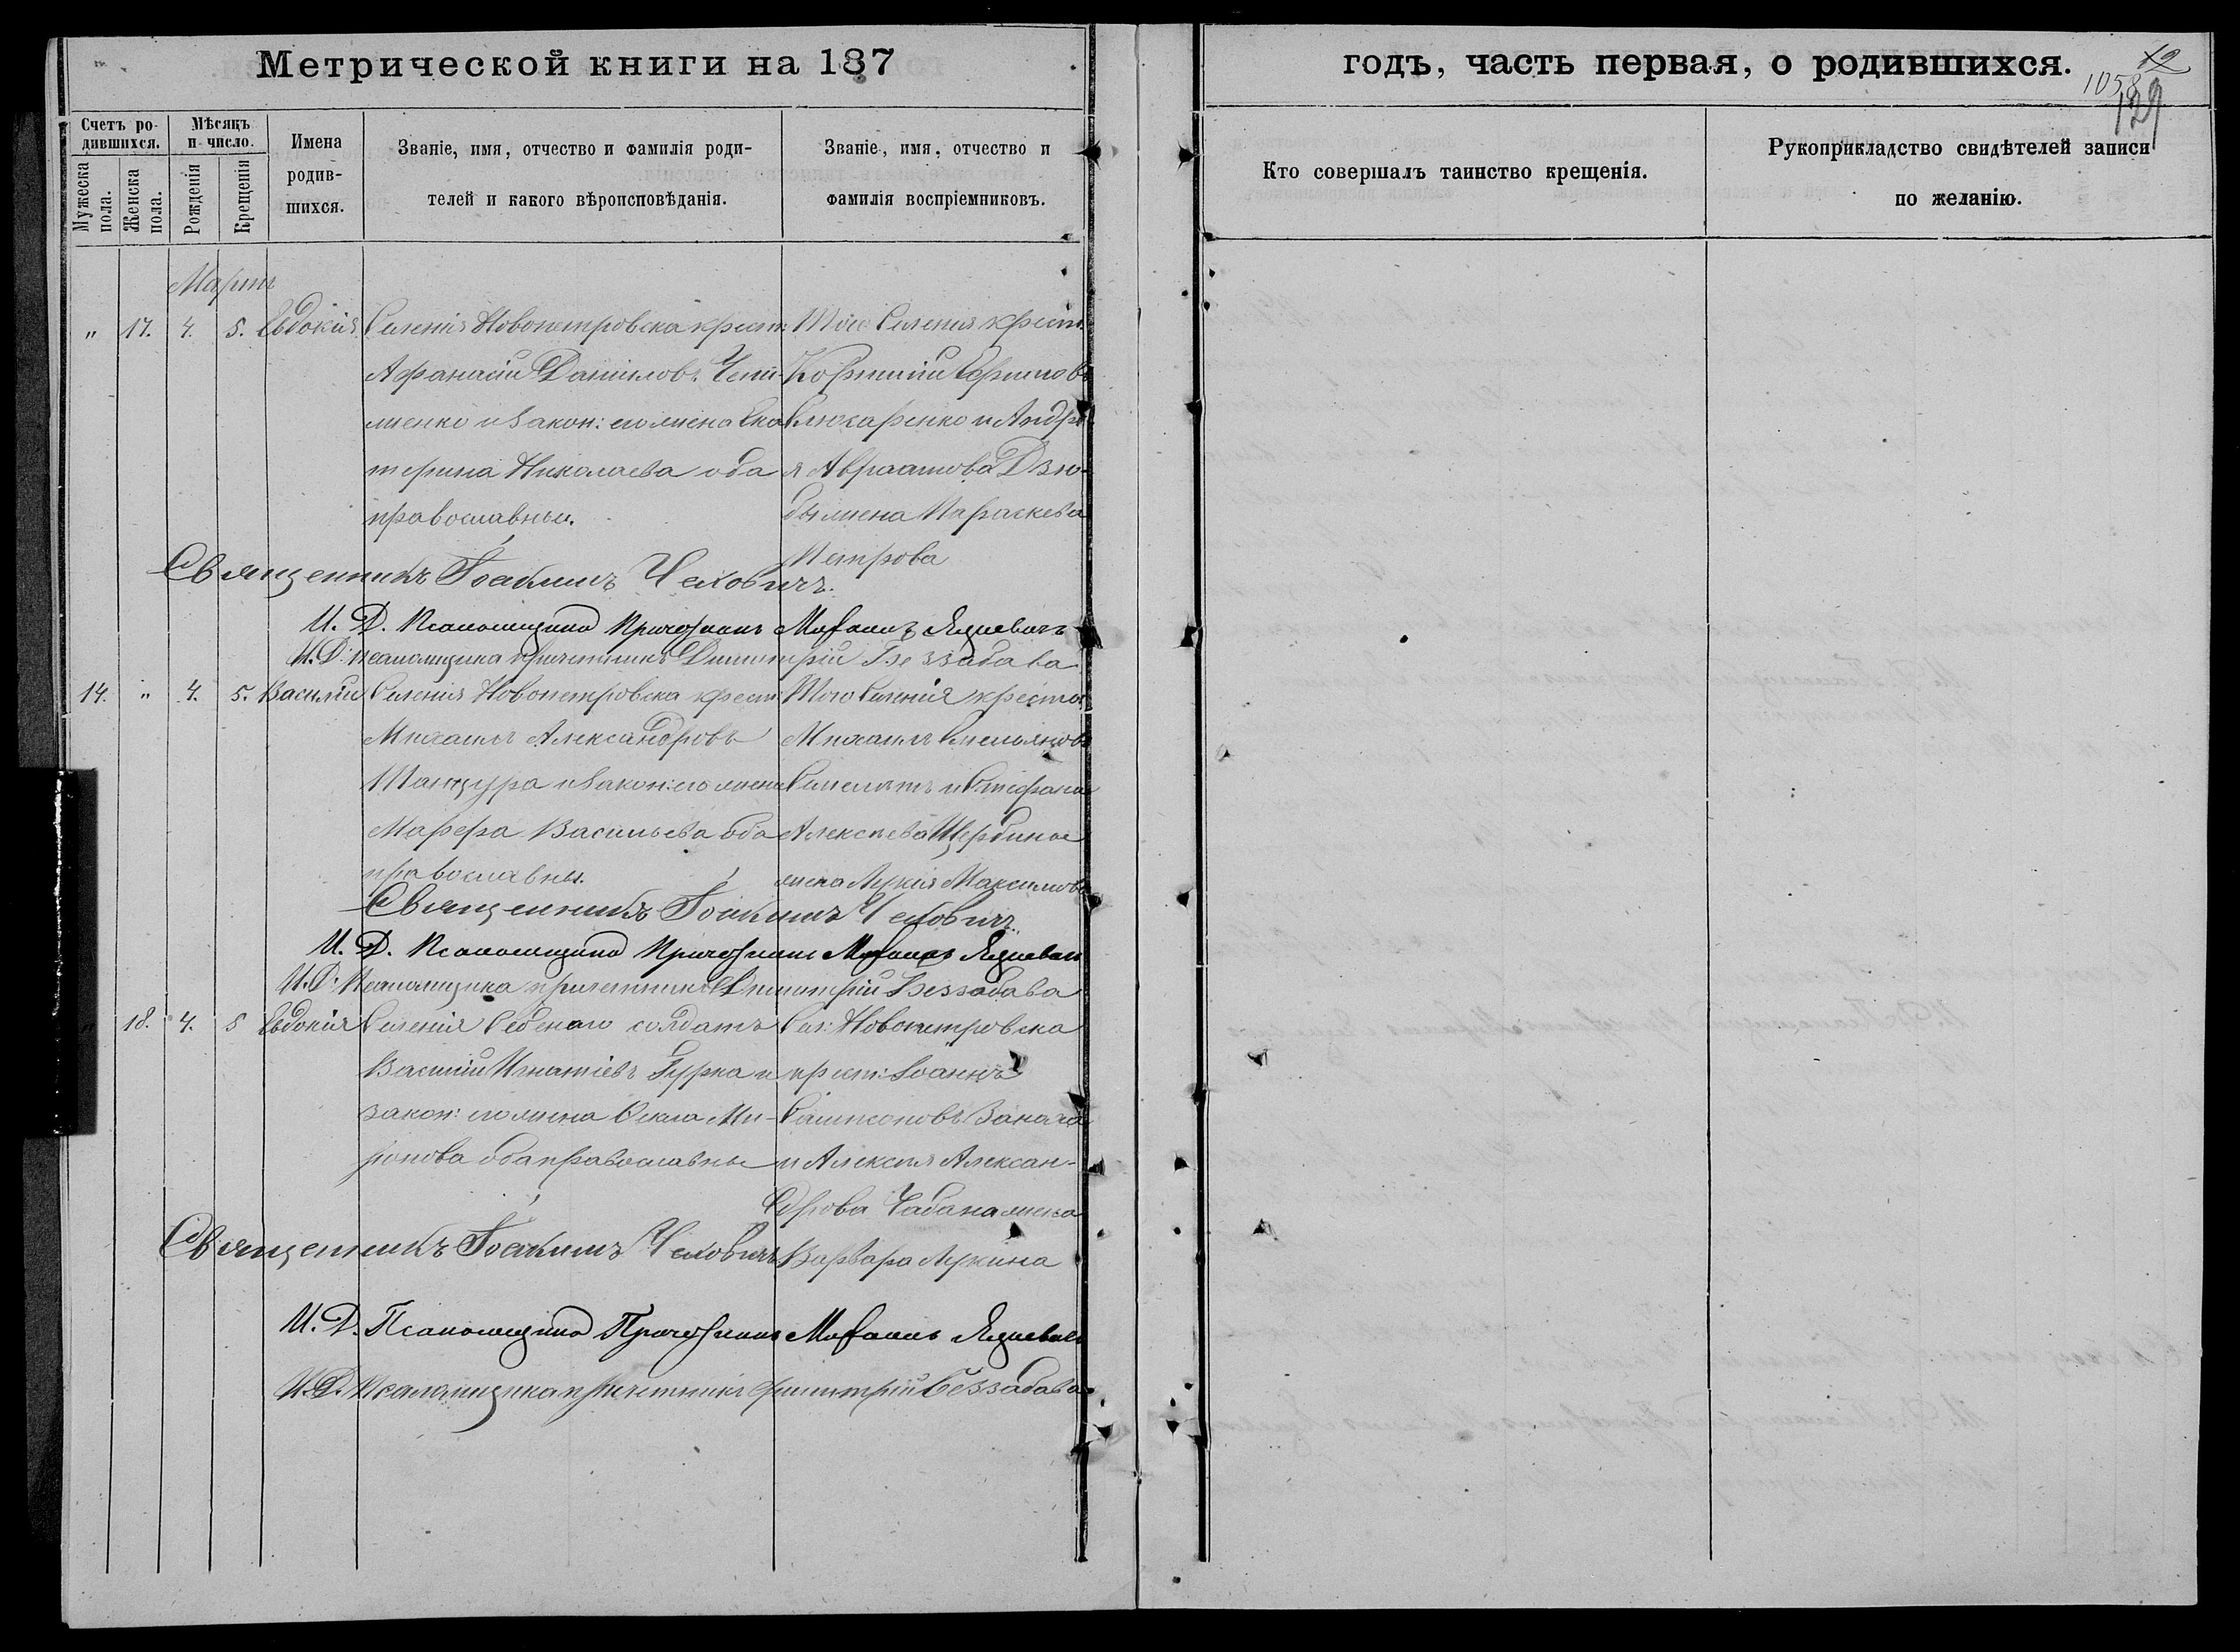 Метрической книги на 187
годъ, часть первая, о родившихся.
12
1058
129
Счетъ ро-
дившихся.
Мужеска
пола.
Женска
пола.
Мѣсяцъ
и число.
Рожденія
Крещенія
Имена
родив-
шихся.
Званіе, имя, отчество и фамилія роди-
телей и какого вѣроисповѣданія.
Званіе, имя, отчество и
фамилія воспріемниковъ.
Кто совершалъ таинство крещенія.
Рукоприкладство свидѣтелей записи
по желанію.
Мартъ
" 17. 4. 5. Евдокія
Селенія Новопетровска крест:
Афанасій Даніиловъ
менко и закон: его жена Ека
терина Николаева оба
православны.
Того Селенія крест:
и Андре
я Авраамова Дзю-
бы жена Параскева
Петрова
Священникъ Іоакимъ Чехович.
И. Д. Псаломщика Причетникъ Яцкевичъ
И. Д. Псаломщика причетникъ Димитрій Беззабава
14. " 4. 5. Василій
Селенія Новопетровска крест:
Михаилъ Александровъ
Танцура и закон: его жена
Марфа Васильева оба
православны.
Того Селенія крестя:
Михаилъ Емельяновъ
и Стефана
Алексѣева Щербины
жена Лукія Максимова
Священникъ Іоакимъ Чехович.
И. Д. Псаломщика Причетникъ Яцкевичъ
И. Д. Псаломщика причетникъ Димитрій Беззабава
" 18. 4. 5 Евдокія
Селенія солдатъ
Василій Игнатіевъ Гурка и
закон: его жена Ѳекла Ми-
ронова оба православны
Сел: Новопетровска
крест: Іоаннъ
Сампсоновъ
и Алексѣя Алексан-
дрова Чабана жена
Варвара Лукина
Священникъ Іоакимъ Чехович
И. Д. Псаломщика Причетникъ Яцкевичъ
И. Д. Псаломщика причетникъ Димитрій Беззабава